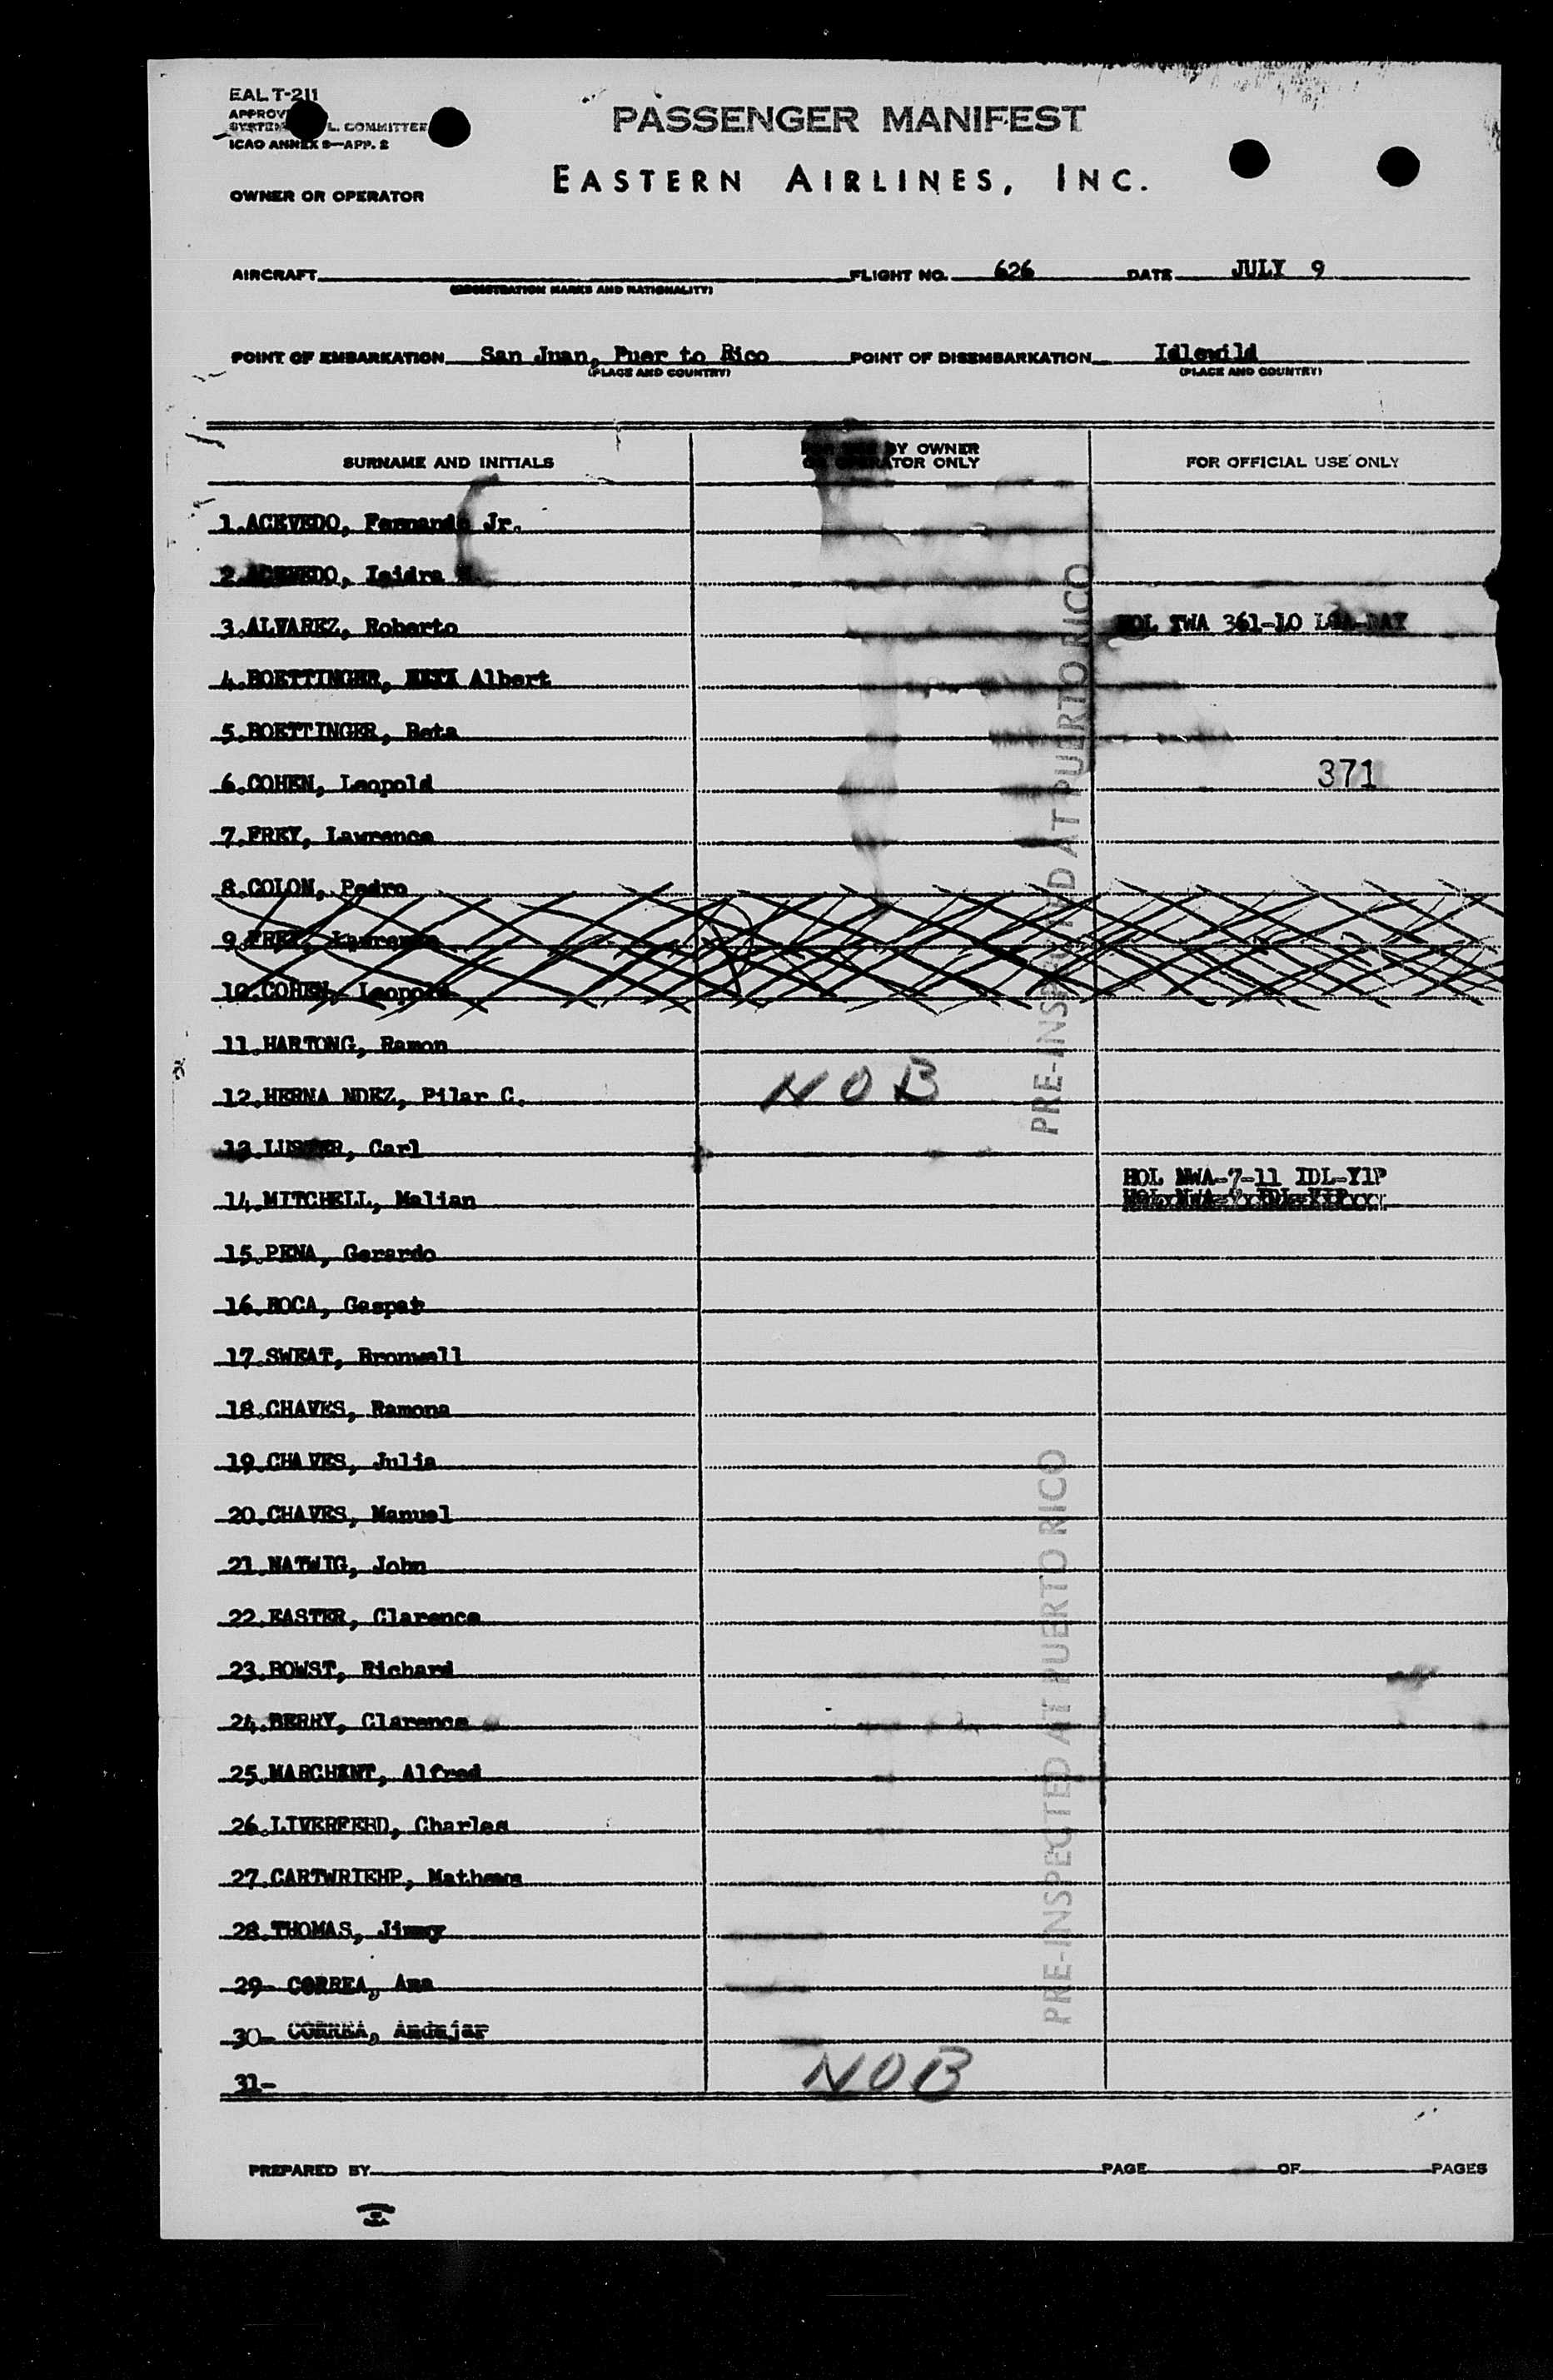 EAL T-211
PASSENGER MANIFEST
L. COMMITTEE
ICAO ANNEX 9—APP. 2
EASTERN AIRLINES, INC.
OWNER OR OPERATOR
AIRCRAFT FLIGHT NO. 626 DATE JULY 9
(REGISTRATION MARKS AND NATIONALITY)
POINT OF EMBARKATION San Juan, Puer to Rico POINT OF DISEMBARKATION Idlewild
(PLACE AND COUNTRY) (PLACE AND COUNTRY)
SURNAME AND INITIALS BY OWNER OPERATOR ONLY FOR OFFICIAL USE ONLY
1.ACEVEDO, Fernando Jr.
2.ACEVEDO, Isidra
3.ALVAREZ, Roberto HOL TWA 361-10
4.BOETTINGER, Albert
5.BOETTINGER, Beta
6.COHEN, Leopold 371
7.FREY, Lawrence
8.COLON, Pedro
9.FREY, Lawrence
10.COHEN, Leopold
11.HARTONG, Ramon
12.HERNA NDEZ, Pilar C. NOB
13. Carl
14.MITCHELL, Melian HOL NWA-7-11 IDL-YIP
15.PENA, Gerardo
16.ROCA, Gaspat
17.SWEAT, Bronwell
18.CHAVES, Ramona
19.CHA VES, Julia
20.CHAVES, Manuel
21.NATWIG, John
22.EASTER, Clarence
23.BOWST, Richard
24.BERRY, Clarence
25.MARCHENT, Alfred
26.LIVERFERD, Charles
27.CARTWRIEHP, Mathews
28.THOMAS, Jimmy
29- CORREA, Ana
30- CORREA, Andujar
31- NOB
PRE-INSPECTED AT PUERTO RICO
PRE-INSPECTED AT PUERTO RICO
PREPARED BY PAGE OF PAGES